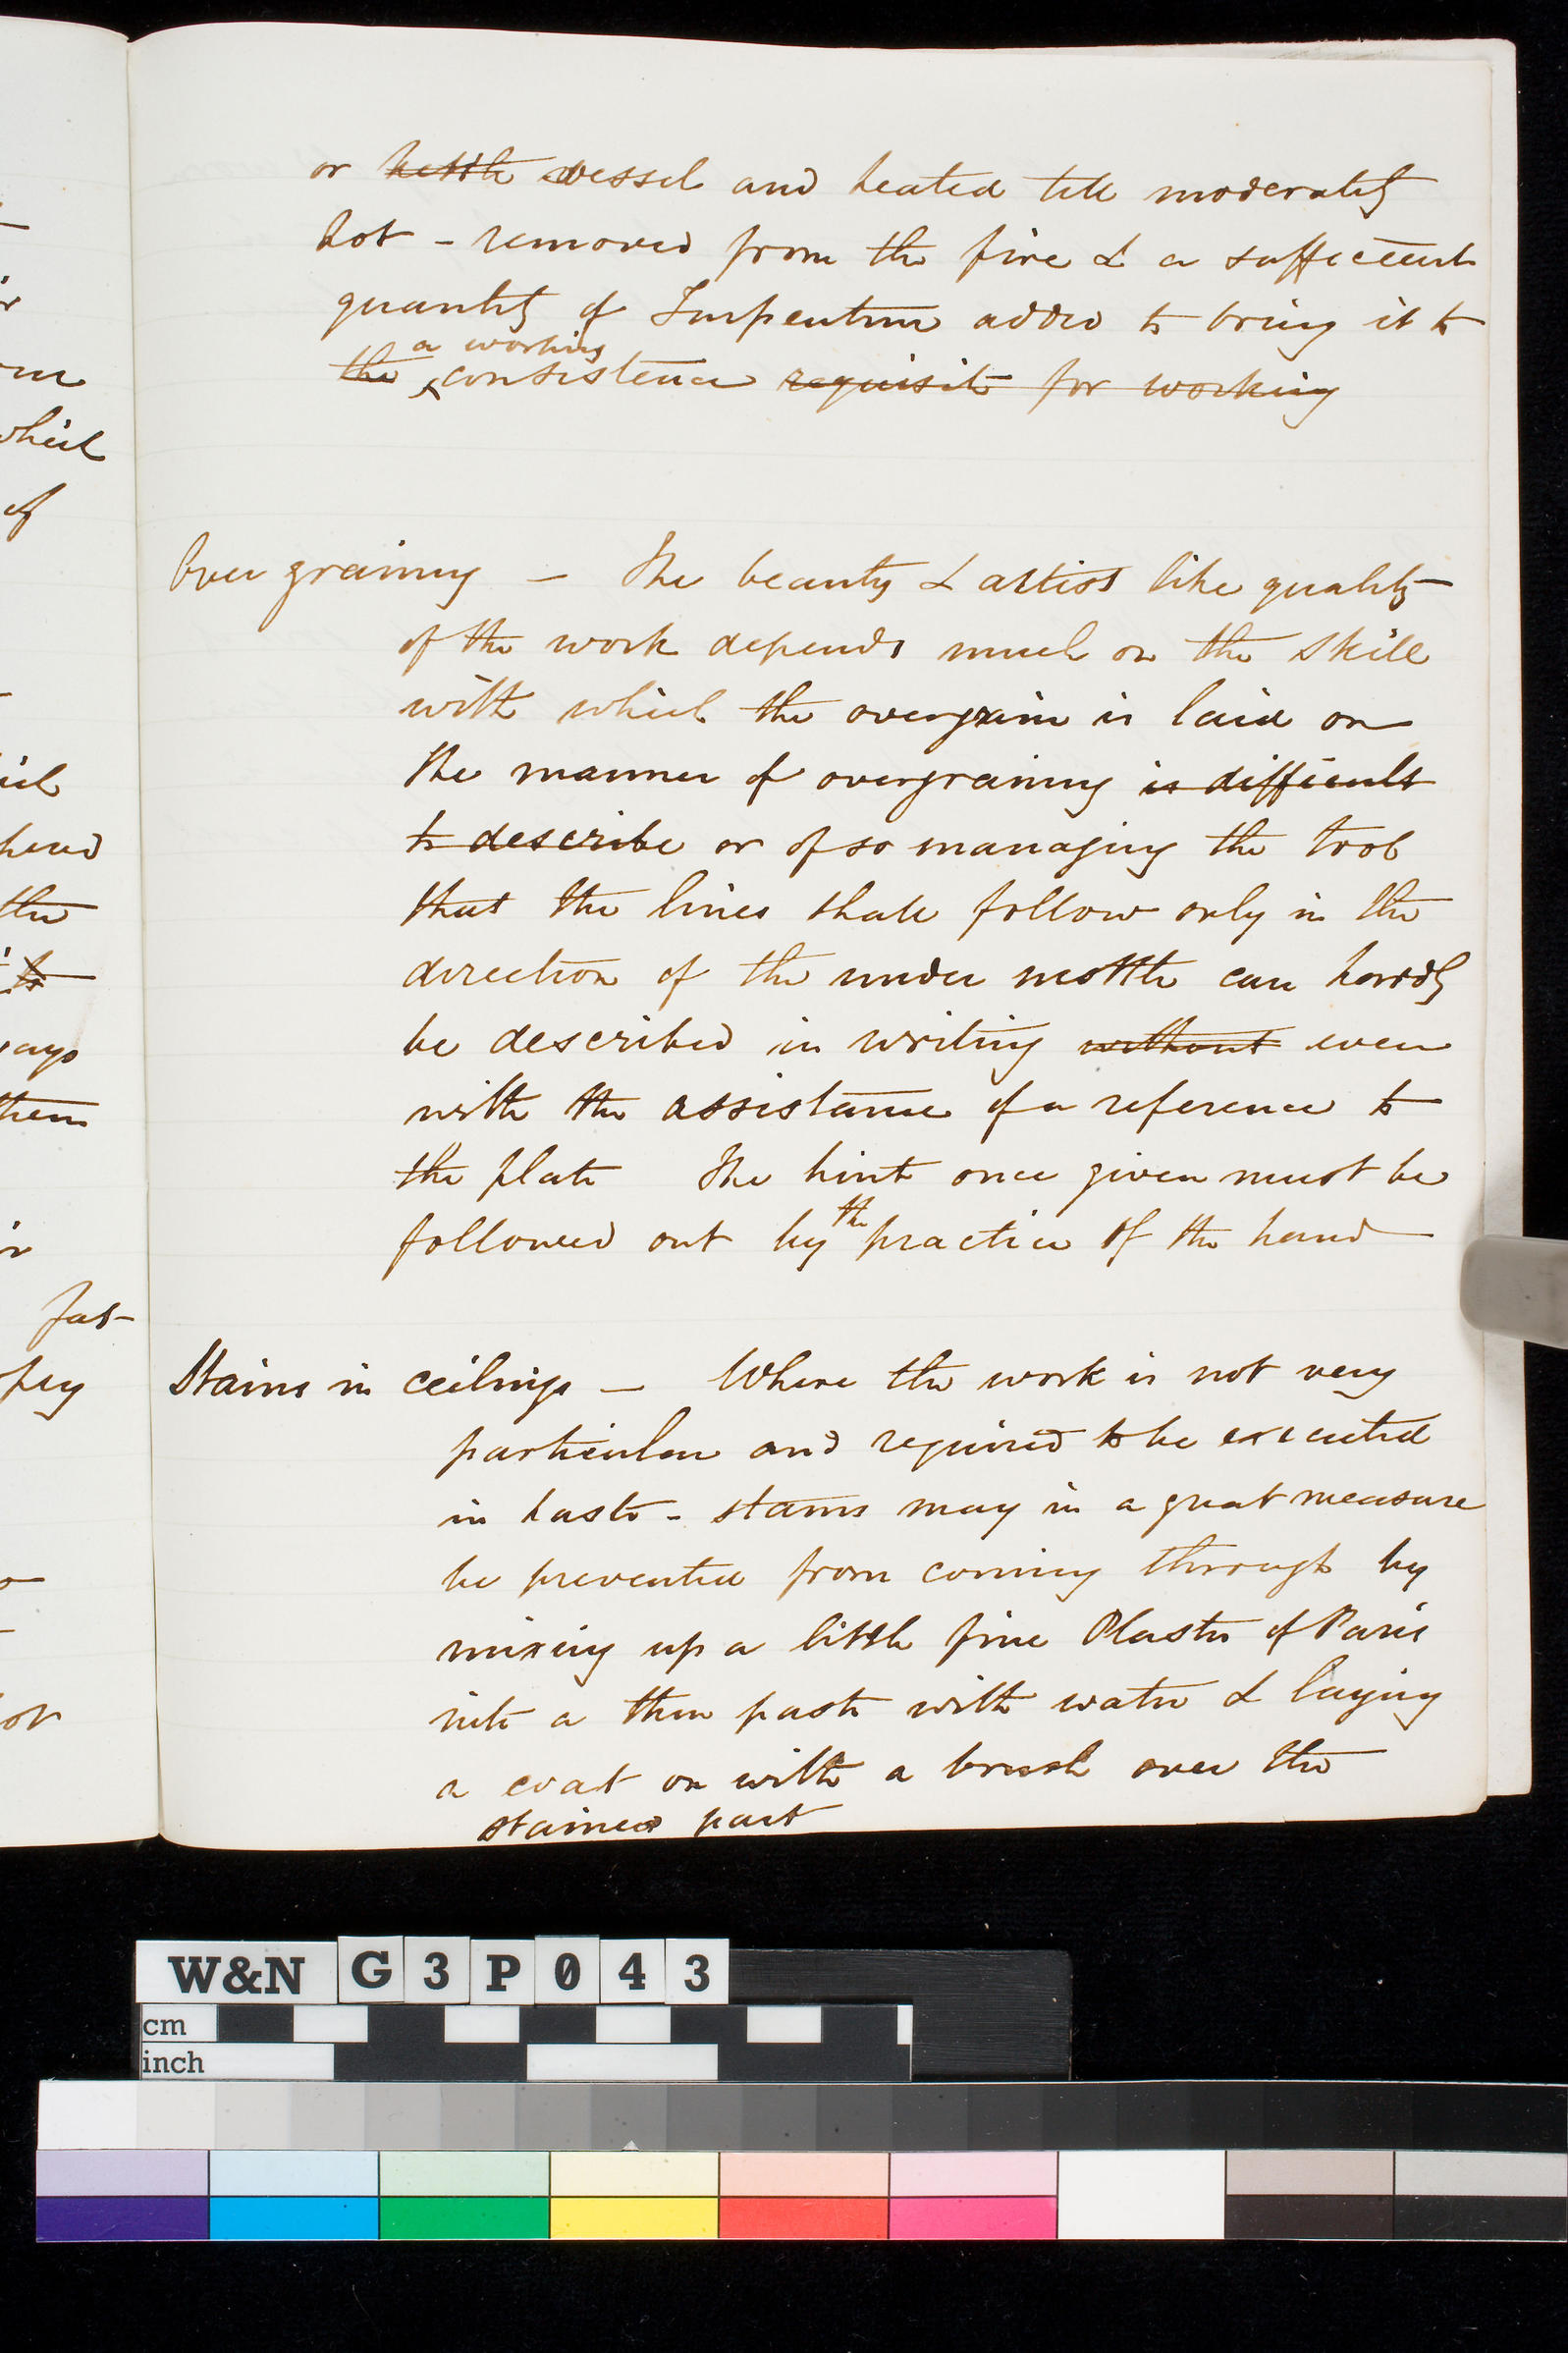 or kettle vessel and heated till moderately
hot - removed from the fire & a sufficient
quantity of Turpentine added to bring it to
a working
the consistence requisite for working
Over graining — The beauty & artist like quality
of the work depends much on the skill
with which the overgrain is laid on
the manner of overgraining is difficult
to describe or of so managing the tool
that the lines shall follow only in the
direction of the under mottle can hardly
be described in writing without even
with the assistance of a reference to
the plate The hint once given must be
the
followed out by practice of the hand
Stains in ceilings — Where the work is not very
particular and required to be executed
in haste - stains may in a great measure
be prevented from coming through by
mixing up a little fine Plaster of Paris
into a thin paste with water & laying
a coat on with a brush over the
stained part
whid
of
the
to
says
them
fat-
W&N G3P043
cm
inch